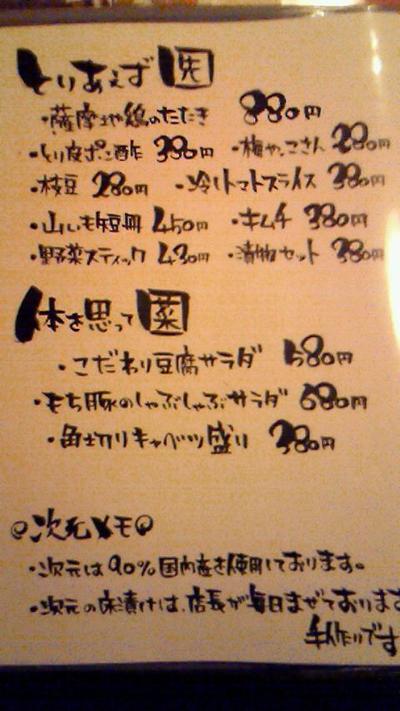 とりあえず 先
・薩摩地鶏のたたき 880円
・とり皮ポン酢 380円 ・梅やっこさん 280円
・枝豆 280円 ・冷しトマトスライス 380円
・山いも短冊 450円 ・キムチ 380円
・野菜スティック 430円 ・漬物セット 380円
体を思って 菜
・こだわり豆腐サラダ 580円
・もち豚のしゃぶしゃぶサラダ 680円
・角切りキャベツ盛り 380円
◎次元メモ◎
・次元は90%国内産を使用しております。
・次元の床漬けは、店長が毎日まぜております
手作りです